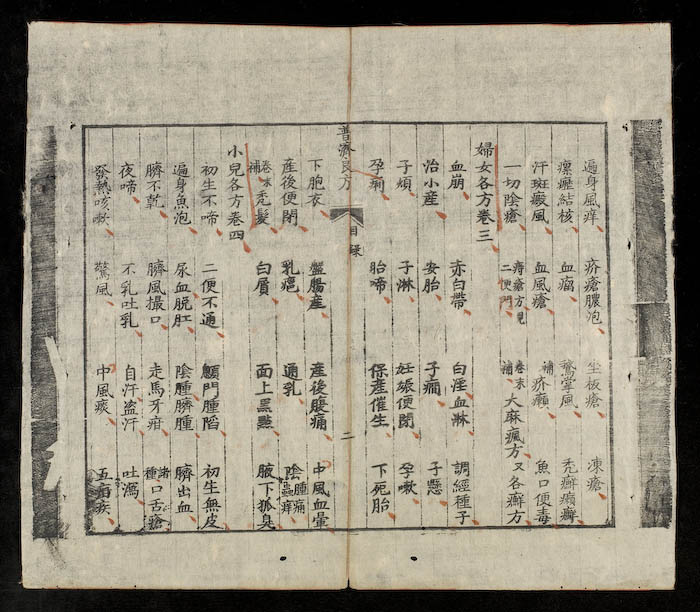 遍身風痒 疥瘡膿泡 坐板瘡 凍瘡
瘰癧結核 血瘤 鵞掌風 禿癬癩癬
汗斑癜風 血風瘡 補疥癩 魚口便毒
一切陰瘡 痔瘡方見二便門 卷末補大麻瘋方 又各癬方
婦女各方卷三
血崩 赤白帶 白淫血淋 調經種子
治小產 安胎 子癎 子懸
子煩 子淋 妊娠便閉 孕嗽
孕痢 胎啼 保產催生 下死胎
普濟良方 目錄 二
下胞衣 盤腸產 產後腹痛 中風血暈
產後便閉 乳𤶊 通乳 陰腫痛蟲痒
卷末補禿髮 白屑 面上黑䵟 腋下狐臭
小兒各方卷四
初生不啼 二便不通 顖門腫陷 初生無皮
遍身魚泡 尿血脫肛 陰腫臍腫 臍出血
臍不乾 臍風撮口 走馬牙疳 諸種口舌瘡
夜啼 不乳吐乳 自汗盜汗 吐瀉
發熱咳嗽 驚風 中風痰 五癎疾